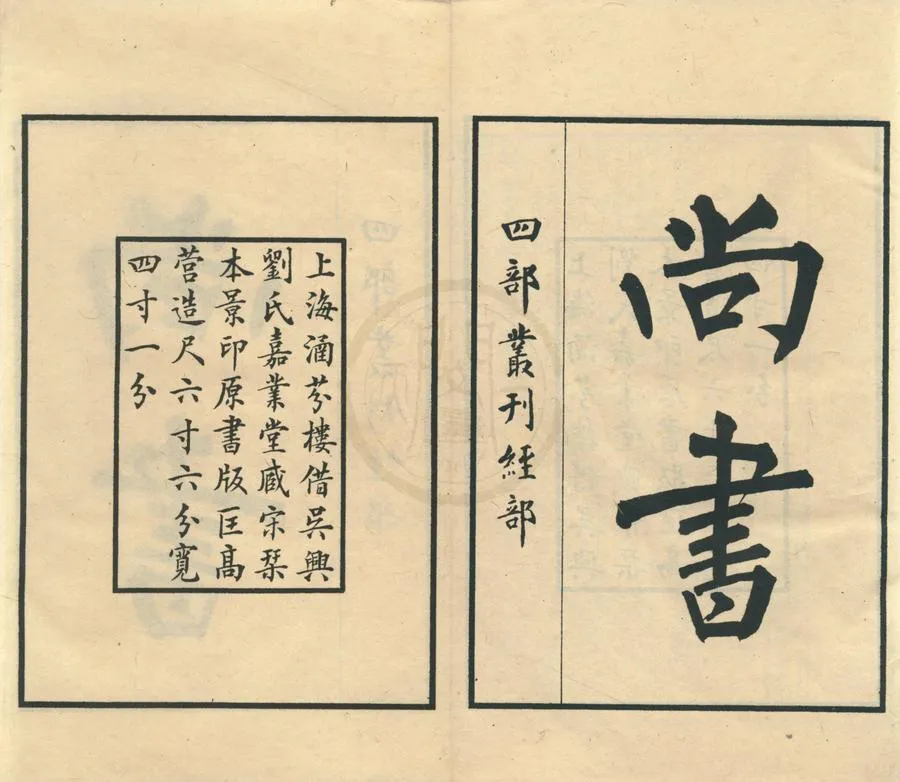 尚書
四部叢刊經部
上海涵芬樓借吳興
劉氏嘉業堂臧宋栞
本景印原書版匡高
营造尺六寸六分寬
四寸一分